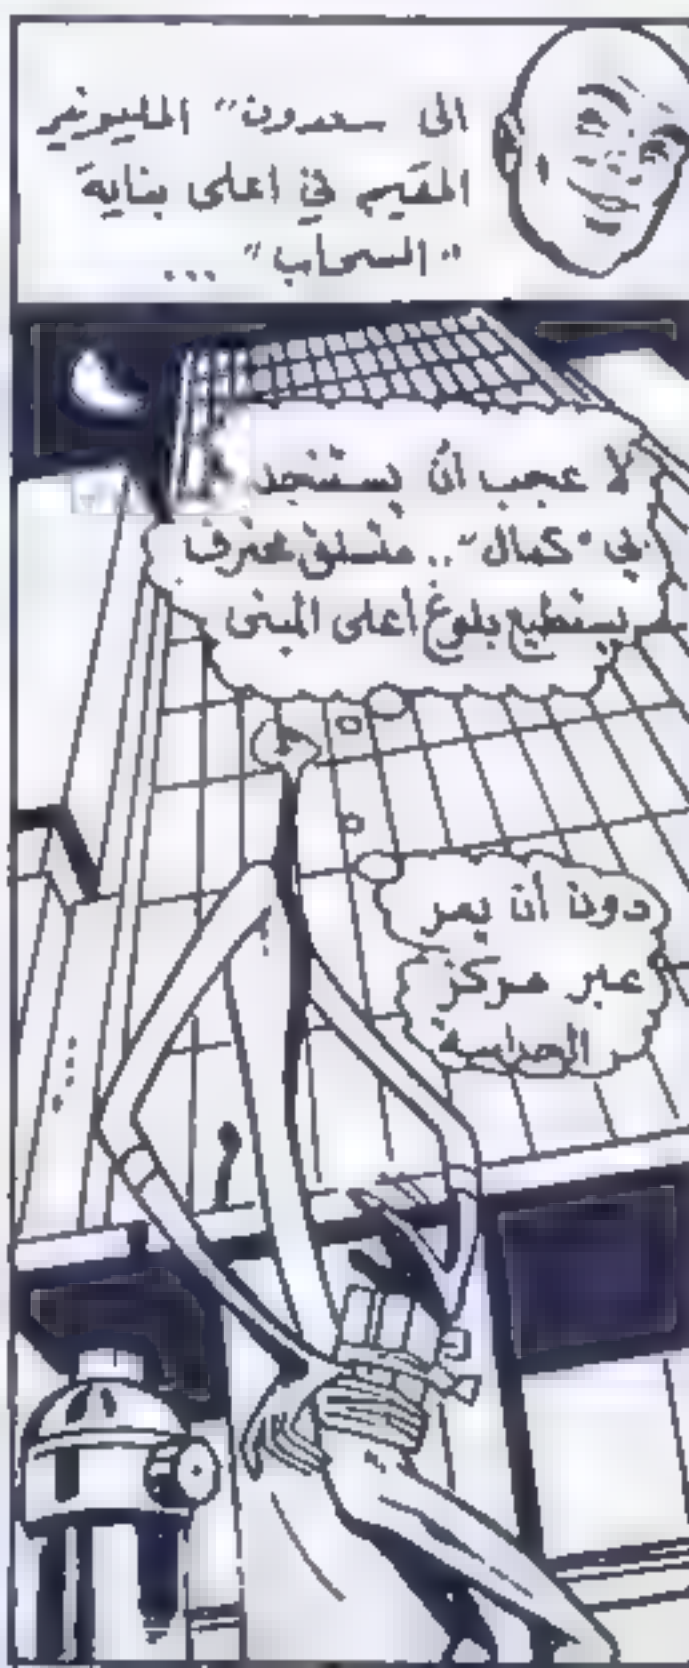 الى سعدون" المليونير
المقيم في اعلى بناية
"السحاب" ...
لا عجب ان يستنجد
بي "كمال".. متسلق محترف
يستطيع بلوغ أعلى المبنى
دون أن يمر
عبر مركز
الحراسة